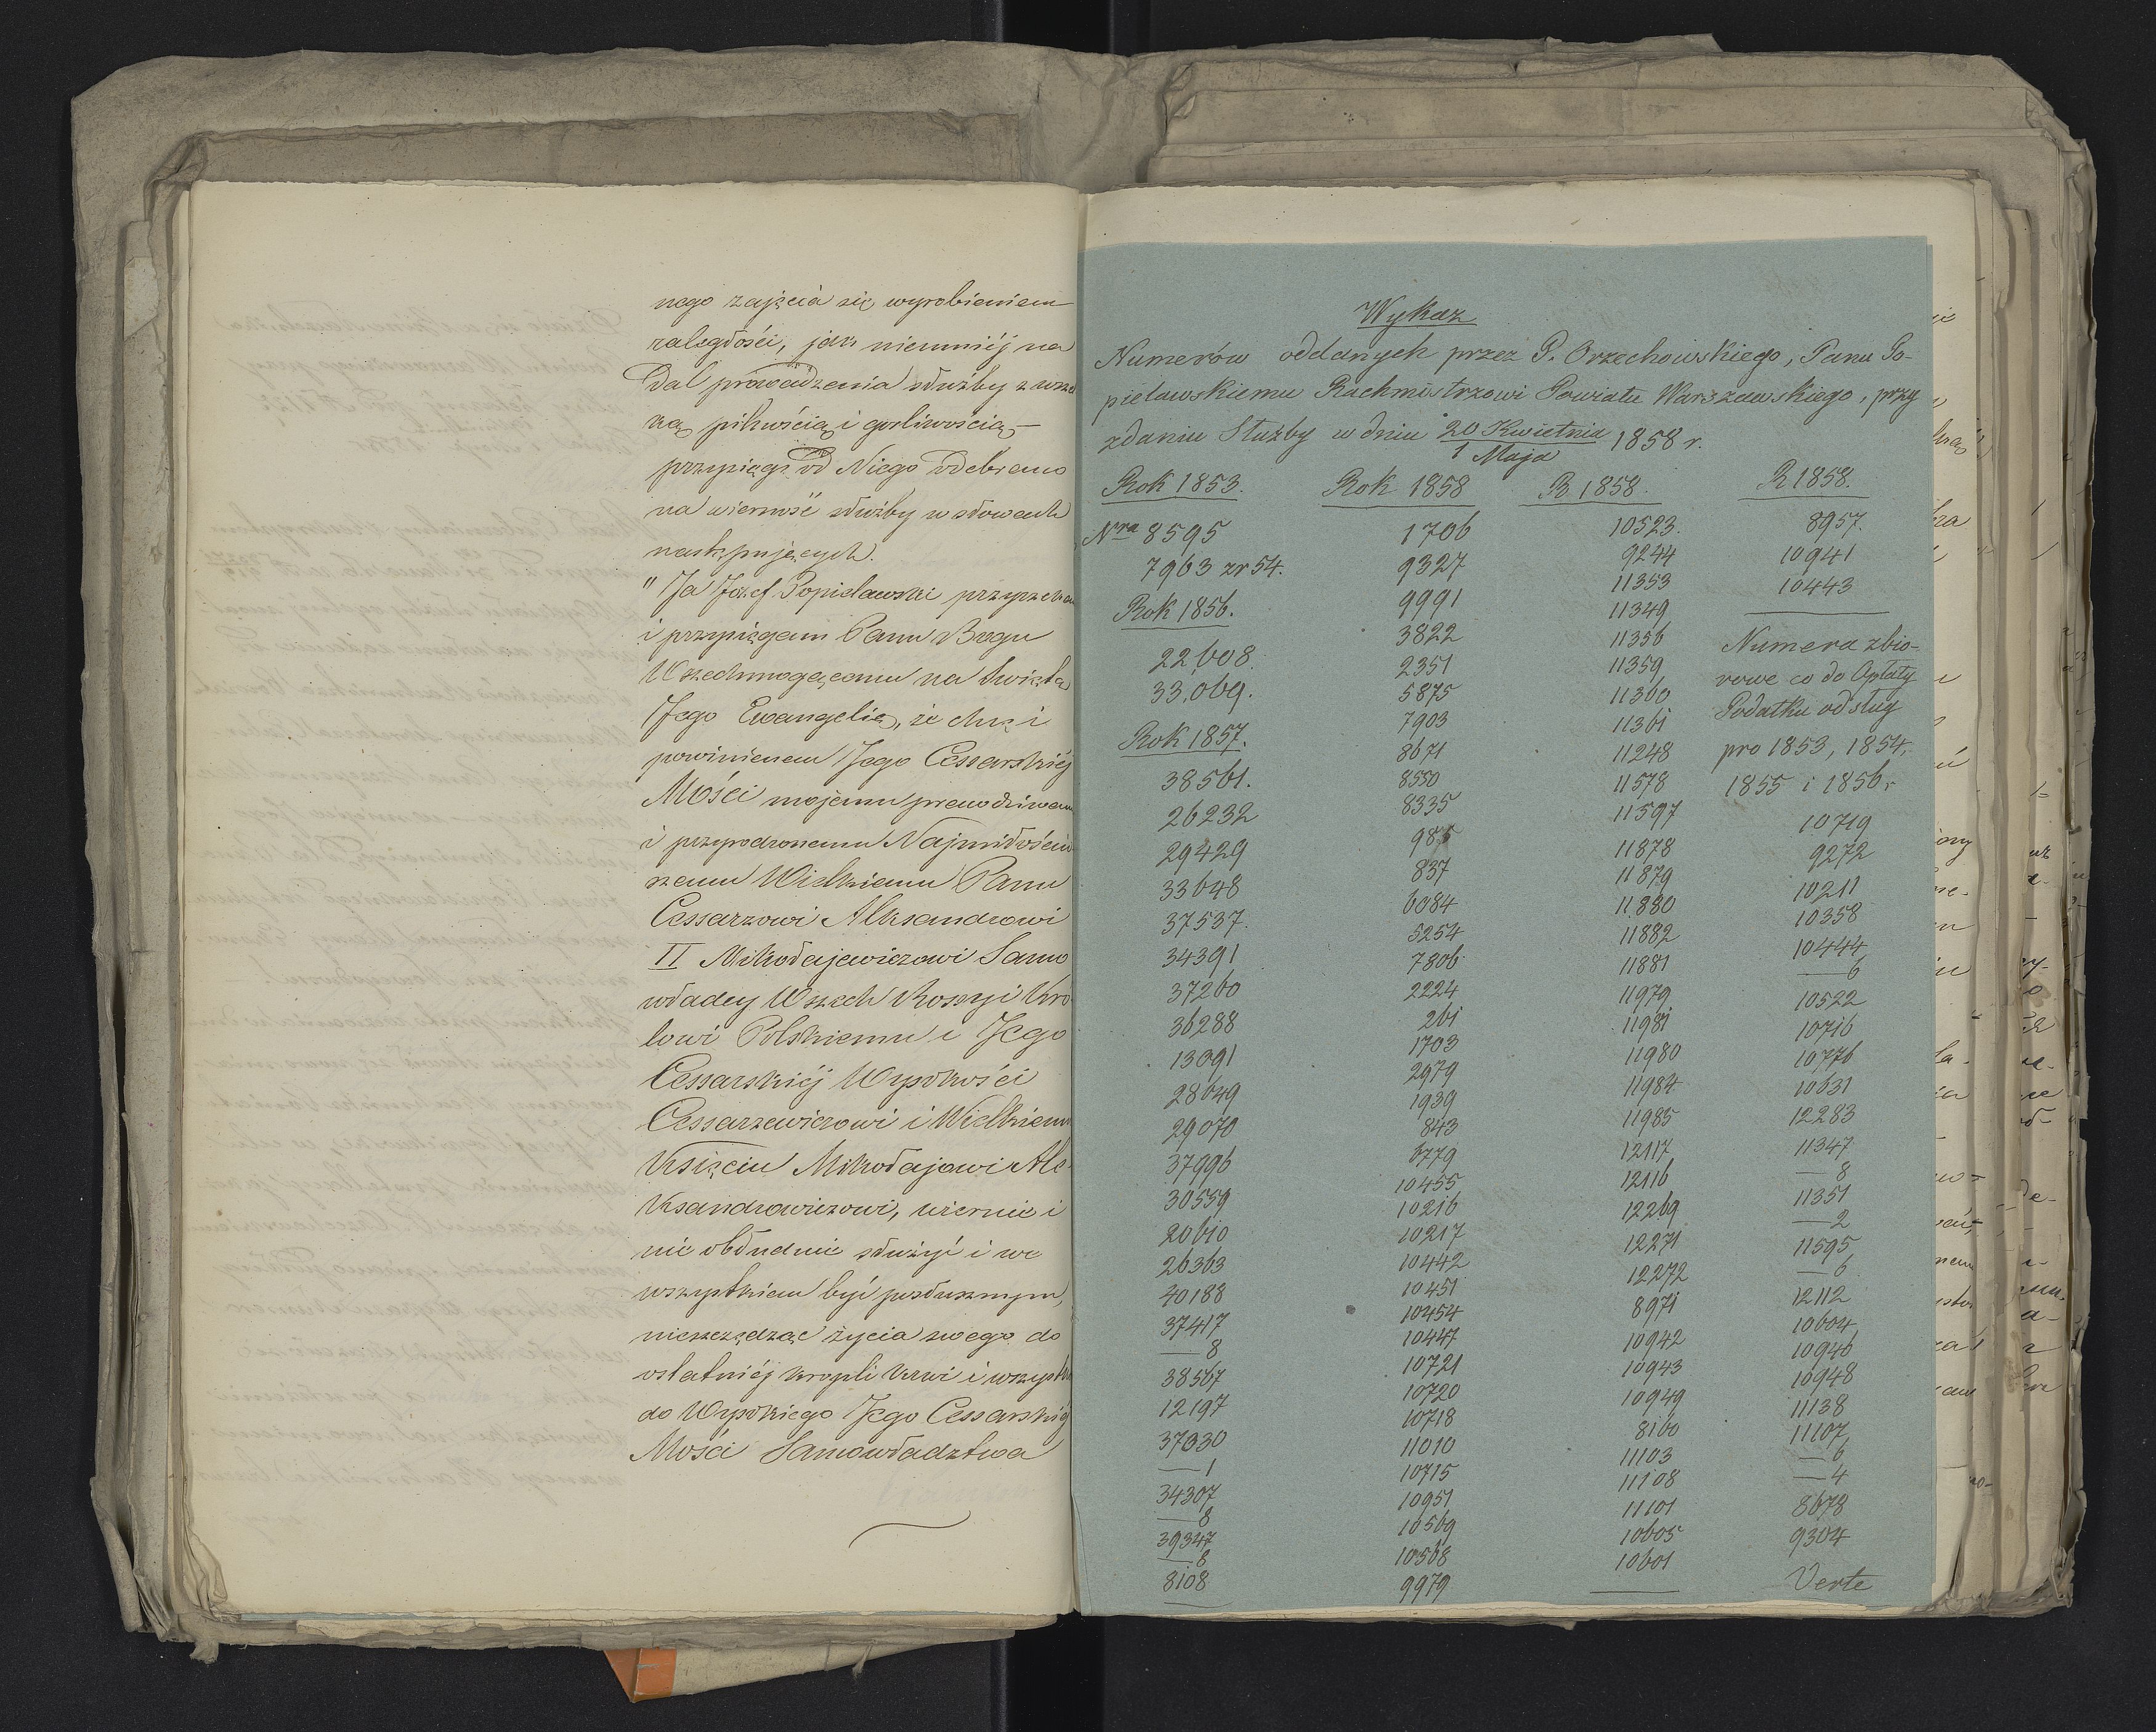 nego zajęcia się wyrobieniem
zaległości, jak niemniéj na
dal prowadzenia służby z wszel
ką pilnością i gorliwością —
przysięgę od Niego odebrano
na wierność służby w słowach
następujących.
"Ja Józef Popielawski przyrzekam
i przysięgam Panu Bogu
Wszechmogącemu na Świętą
Jego Ewangelię, że chcę i
powinienem Jego Cessarskiéj
Mości mojemu prawdziwemu
i przyrodzonemu Najmiłości
szemu Wielkiemu Panu
Cessarzowi Aleksandrowi
II Mikołajewiczowi Samo
władcy Wszech Rossyi Kró
lowi Polskiemu i Jego
Cessarskiéj Wysokości
Cessarzewiczowi i Wielkiemu
Księciu Mikołajowi Ale-
ksandrowiczowi, wiernie i
nie obłudnie służyć i we
wszystkiem być posłusznym,
nieszczędząc życia swego do
ostatniéj kropli krwi i wszystkie
do Wysokiego Jego Cessarskiéj
Mości Samowładztwa
Wykaz
Numerów oddanych przez P. Orzechowskiego, Panu Po-
pielawskiemu Rachmistrzowi Powiatu Warszawskiego, przy
zdaniu Służby w dniu 20 Kwietnia / 1 Maja 1858 r.
Rok 1853.
Nra 8595
7963 zr 54.
Rok 1856.
22,608.
33,069.
Rok 1857.
38561.
26232
29429
33648
37537.
34391
37260
36288
13091
28649
29070
37996
30559
20610
26363
40188
37417
— 8
38567
12197
37030
— 1
34307
— 8
39347
— 8
8108
Rok 1858
1706
9327
9991
3822
2351
5875
7903
8671
8550
8335
985
837
6084
5254
7806
2224
261
1703
2979
1939
843
6779
10455
10216
10217
10442
10451
10454
10447
10721
10720
10718
11010
10715
10951
10569
10568
9979
R 1858.
10523.
9244
11353
11349
11356
11359
11360
11361
11248
11578
11597
11878
11879
11880
11882
11881
11979
11981
11980
11984
11985
12117
12116
12269
12271
12272
8971
10942
10943
10949
8160
11103
11108
11101
10605
10601
R 1858.
8957.
10941
10443
Numera zbio-
rowe co do Opłaty
Podatku od sług
pro 1853, 1854,
1855 i 1856 r
10719
9272
10211
10358
10444
— 6
10522
10716
10776
10631
12283
11347
— 8
11351
— 2
11595
— 6
12112
10604
10946
10948
11138
11107
— 6
— 4
8678
9304
Verte